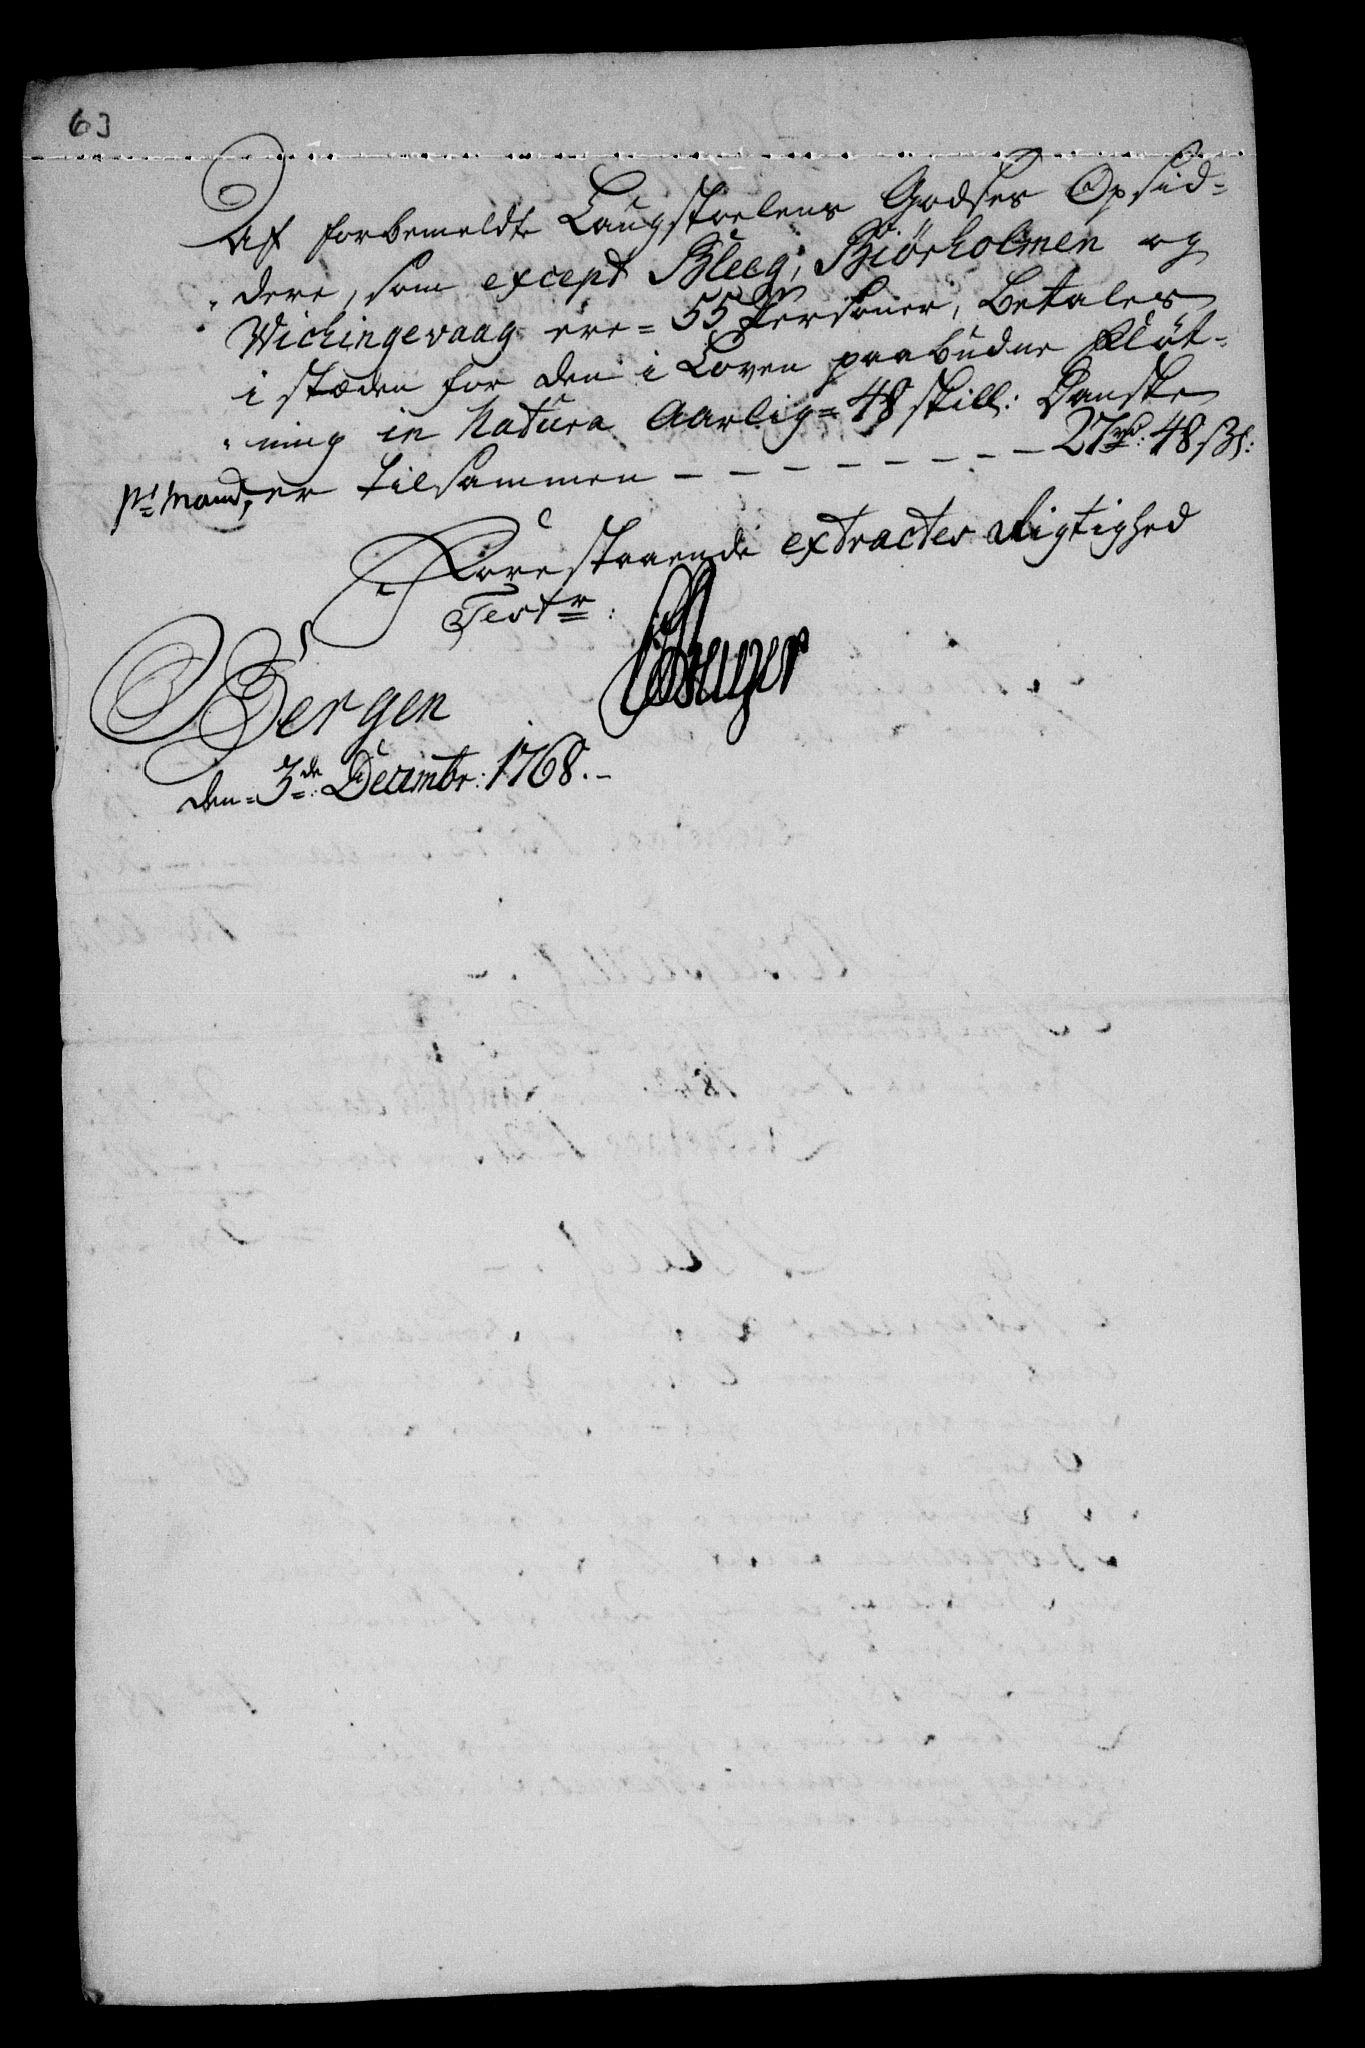 63
Af forbemeldte Laugstoelens Godses Opsid-
dere, som except Bleeg, Biörholmen og
Wichingevaag ere = 55 Persohner, betales
i stæden for den i Loven paabudne Fløt-
ning in Natura Aarlig = 48 skill: Danske
pr Mand, er tilsammen - - - - - - - - 27 rd: 48 sk:
Forestaaende extractes Rigtighed
Testr:
Bergen
den = 3de: Decembr: 1768. -